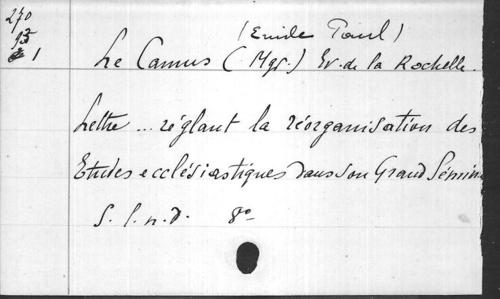 270
(Emile Paul)
93
1
Le Camus (Mgr.) Ev. de la Rochelle.
Lettre ... réglant la réorganisation des
Etudes ecclésiastiques dans son Grand Sémin
S. l. n. d. 8o